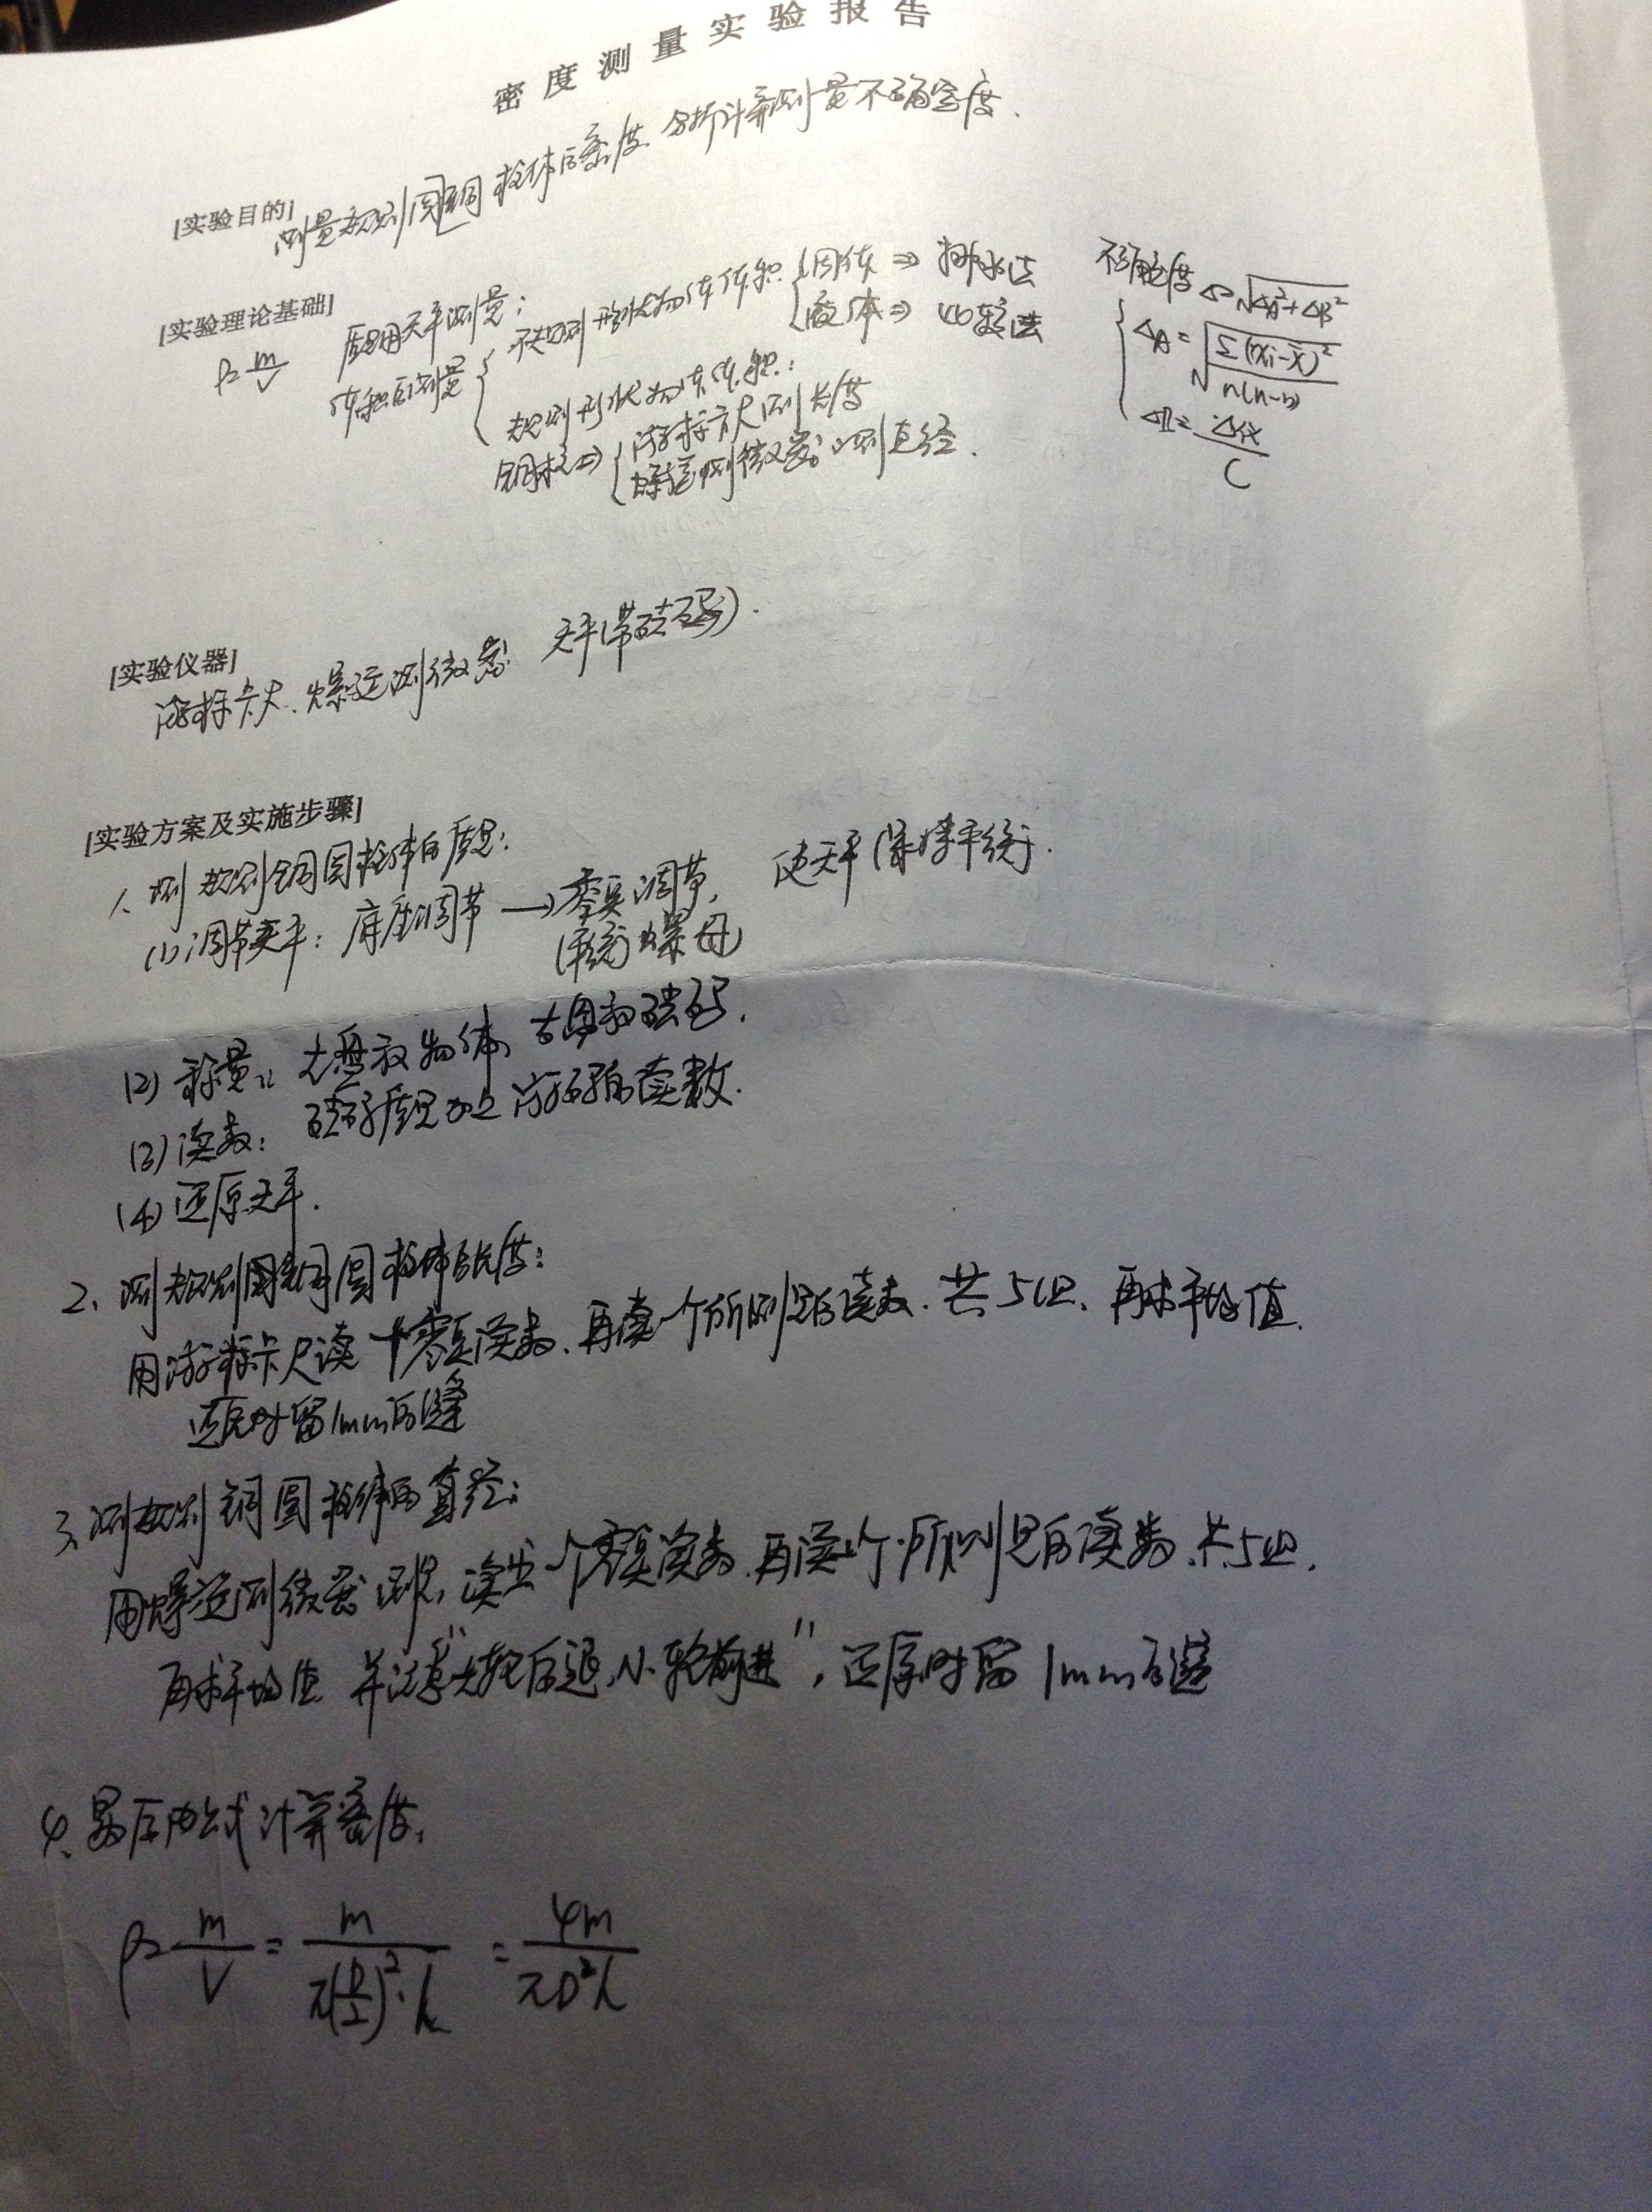 密度测量实验报告
[实验目的]
测量规则圆铜柱体的密度,分析计算测量不确定度.
[实验理论基础]
ρ=m/V 质量用天平测量;
体积的测量
不规则形状物体体积 固体⇒排水法
液体⇒比较法
规则形状物体体积:
铜柱⇒ 游标卡尺测长度
螺旋测微器测直径.
不确定度 Δ=√(ΔA²+ΔB²)
ΔA=√(Σ(xi-x̄)²/n(n-1))
ΔB=Δ仪/C
[实验仪器]
游标卡尺、螺旋测微器、天平(带砝码).
[实验方案及实施步骤]
1、测规则铜圆柱体的质量:
(1)调节天平:底座调节→零点调节, 使天平保持平衡.
(平衡)螺母
(2)称量:左盘放物体,右盘放砝码.
(3)读数:砝码质量加上游码的读数.
(4)还原天平.
2、测规则铜圆柱体的长度:
用游标卡尺读一个零点读数,再读一个所测量的读数.共5组、再求平均值.
还原时留1mm的缝
3、测规则铜圆柱体的直径:
用螺旋测微器测量,读出一个零点读数,再读一个所测量的读数.共5组.
再求平均值 并注意"大轮后退,小轮前进",还原时留1mm的缝
4、最后由公式计算密度,
ρ=m/V=m/(π(D/2)²·h)=4m/(πD²h)